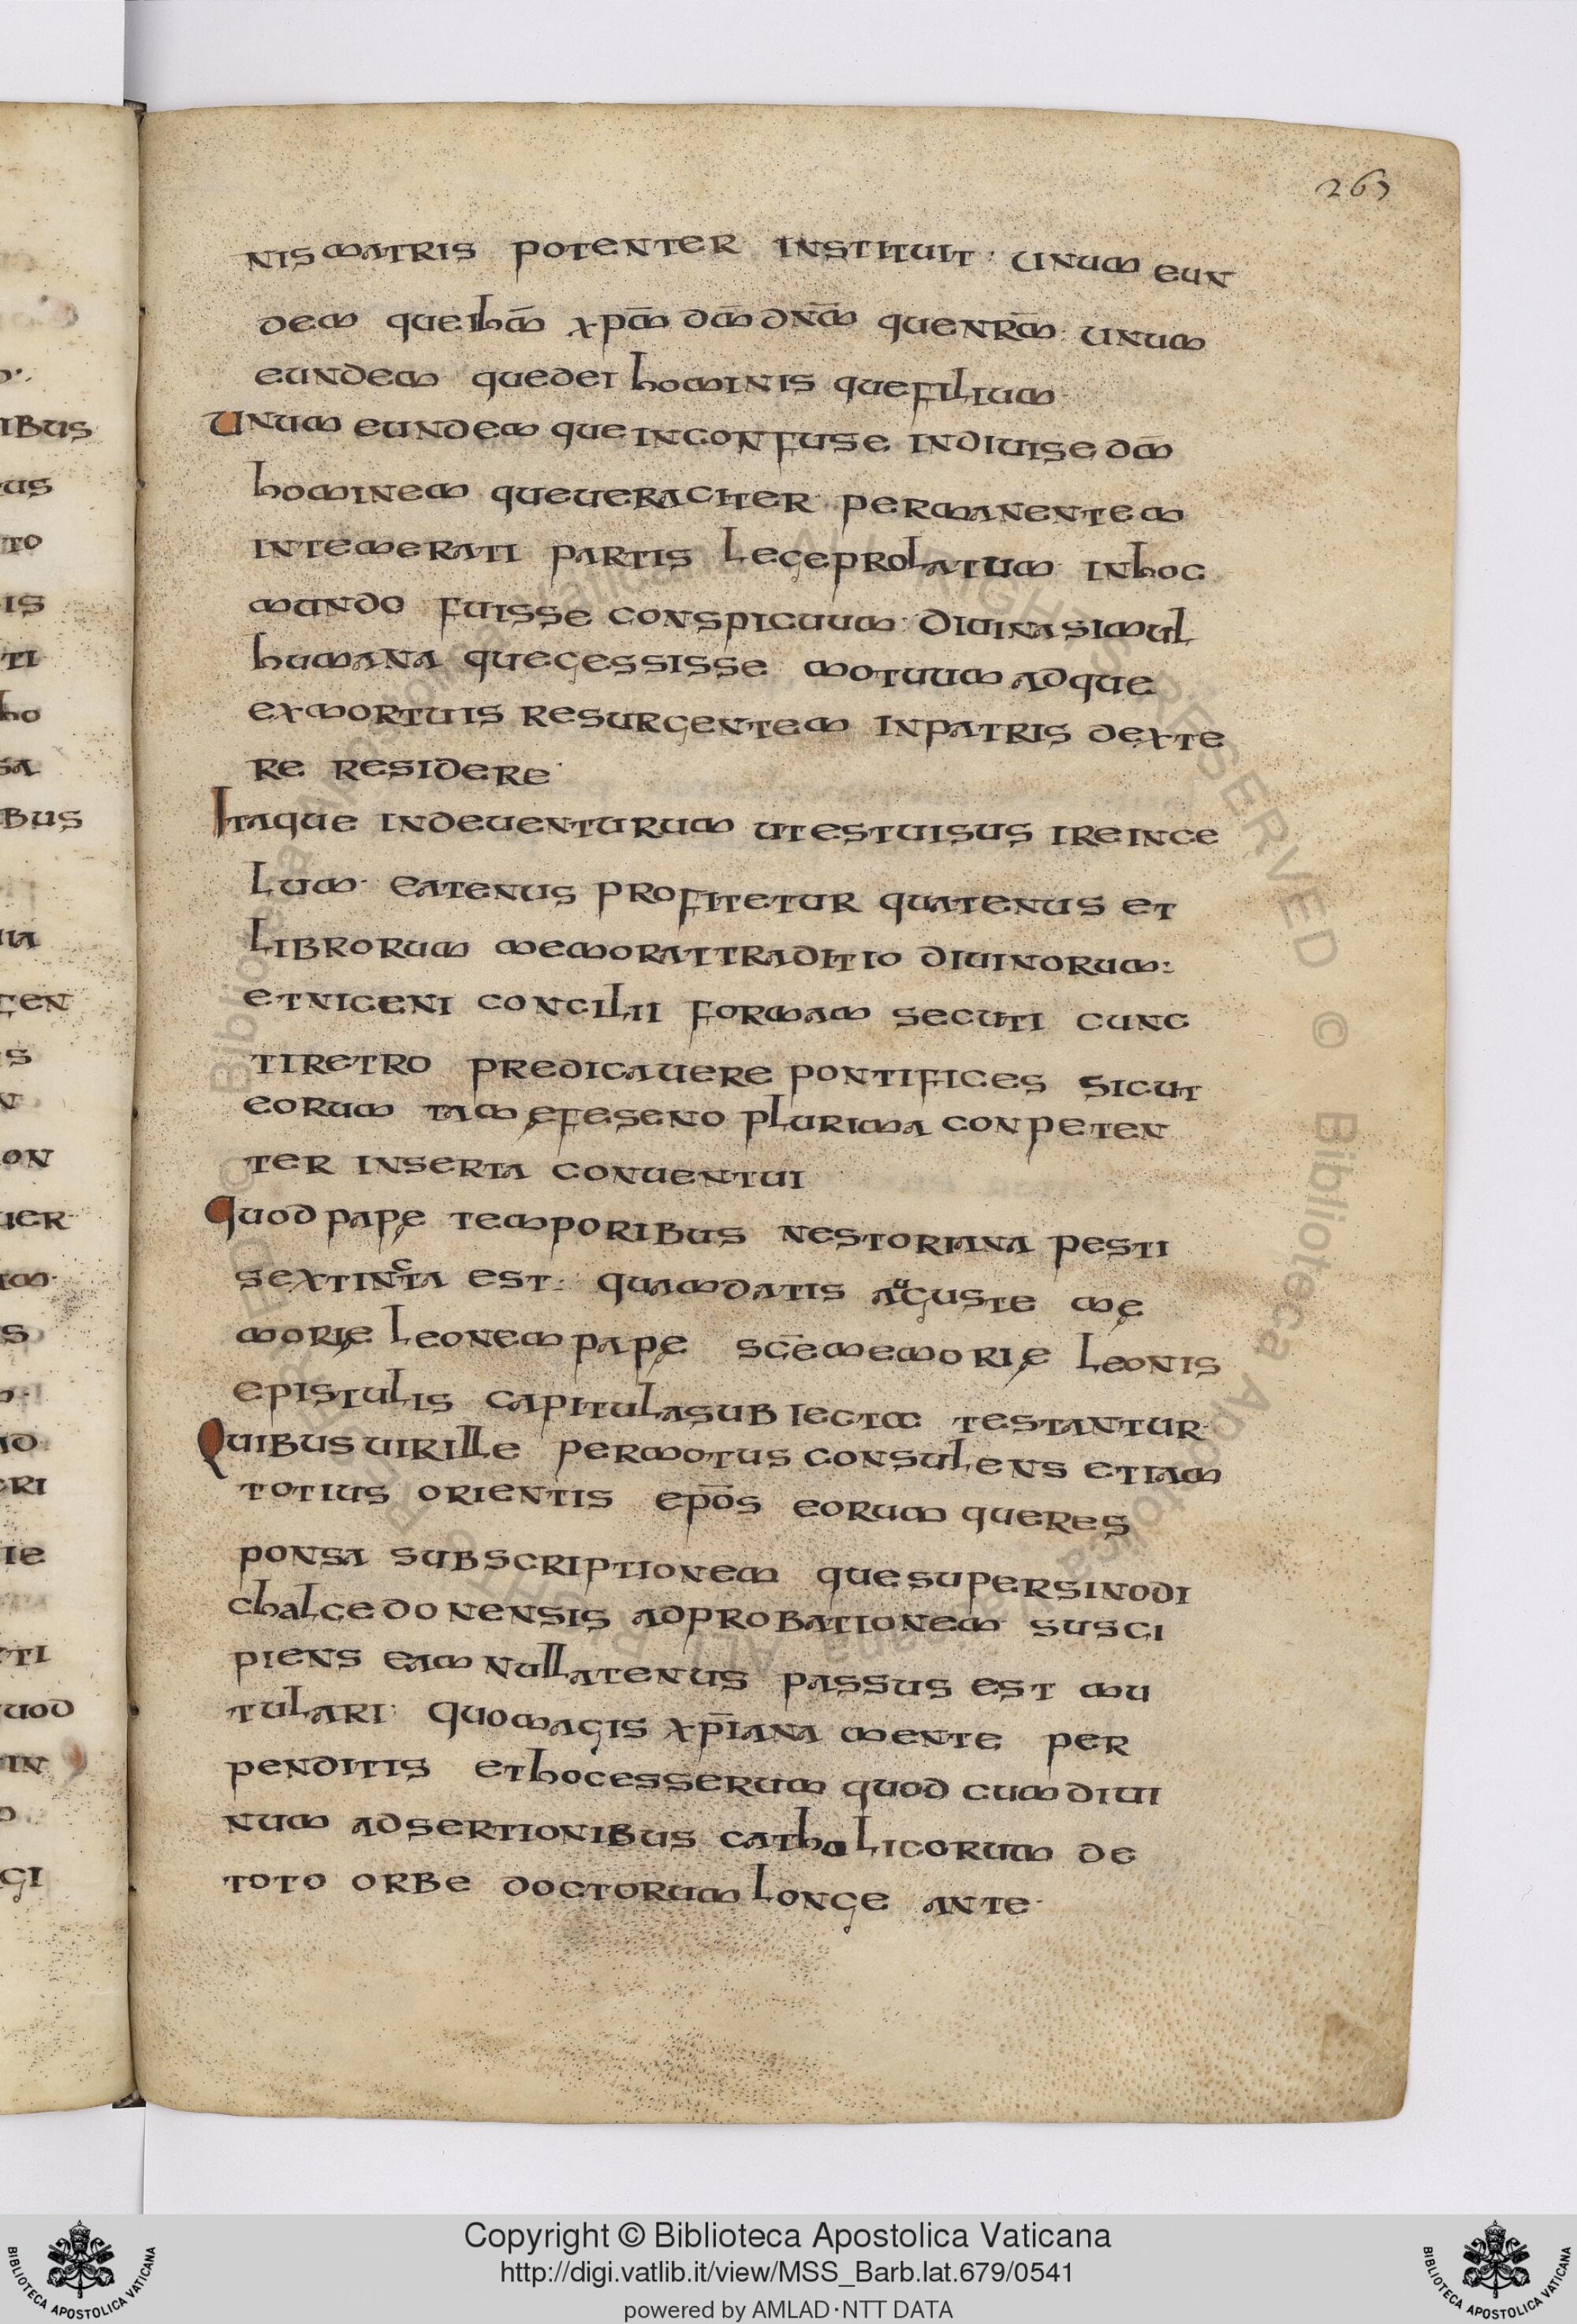 263
nis matris potenter instituit · unum eun
dem que ihm̄ xpm̄ dm̄ dnm̄ que nrm̄ · unum
eundem que dei hominis que filium
Unum eundem que inconfuse indiuise dm̄
hominem que ueraciter permanentem
intemerati partis lege prolatum in hoc
mundo fuisse conspicuum · diuina simul
humana que gessisse motuum adque
ex mortuis resurgentem in patris dexte
re residere ·
Itaque inde uenturum ut est uisus ire in ce
lum · eatenus profitetur quatenus et
librorum memorat traditio diuinorum :
et niceni concilii formam secuti cunc
ti retro predicauere pontifices sicut
eorum tam ęfeseno plurima conpeten
ter inserta conuentui
Quod papę temporibus nestoriana pesti
s extincta est : quam datis auguste mę
morię leonem papę scē memorię leonis
epistulis capitula sub iectae testantur ·
Quibus uir ille permotus consulens etiam
totius orientis epōs eorum que res
ponsa subscriptionem que super sinodi
chalcedonensis adprobationem susci
piens eam nullatenus passus est mu
tulari · quo magis xp̄iana mente per
penditis et hoc esse rum quod cum diui
num adsertionibus catholicorum de
toto orbe doctorum longe ante ·
ibus
us
to
is
ti
ho
sa
bus
gen
s
on
uer
s
ad
eri
ie
ti
uod
in
gi
Copyright © Biblioteca Apostolica Vaticana
http://digi.vatlib.it/view/MSS_Barb.lat.679/0541
powered by AMLAD·NTT DATA
BIBLIOTECA APOSTOLICA VATICANA
BIBLIOTECA APOSTOLICA VATICANA